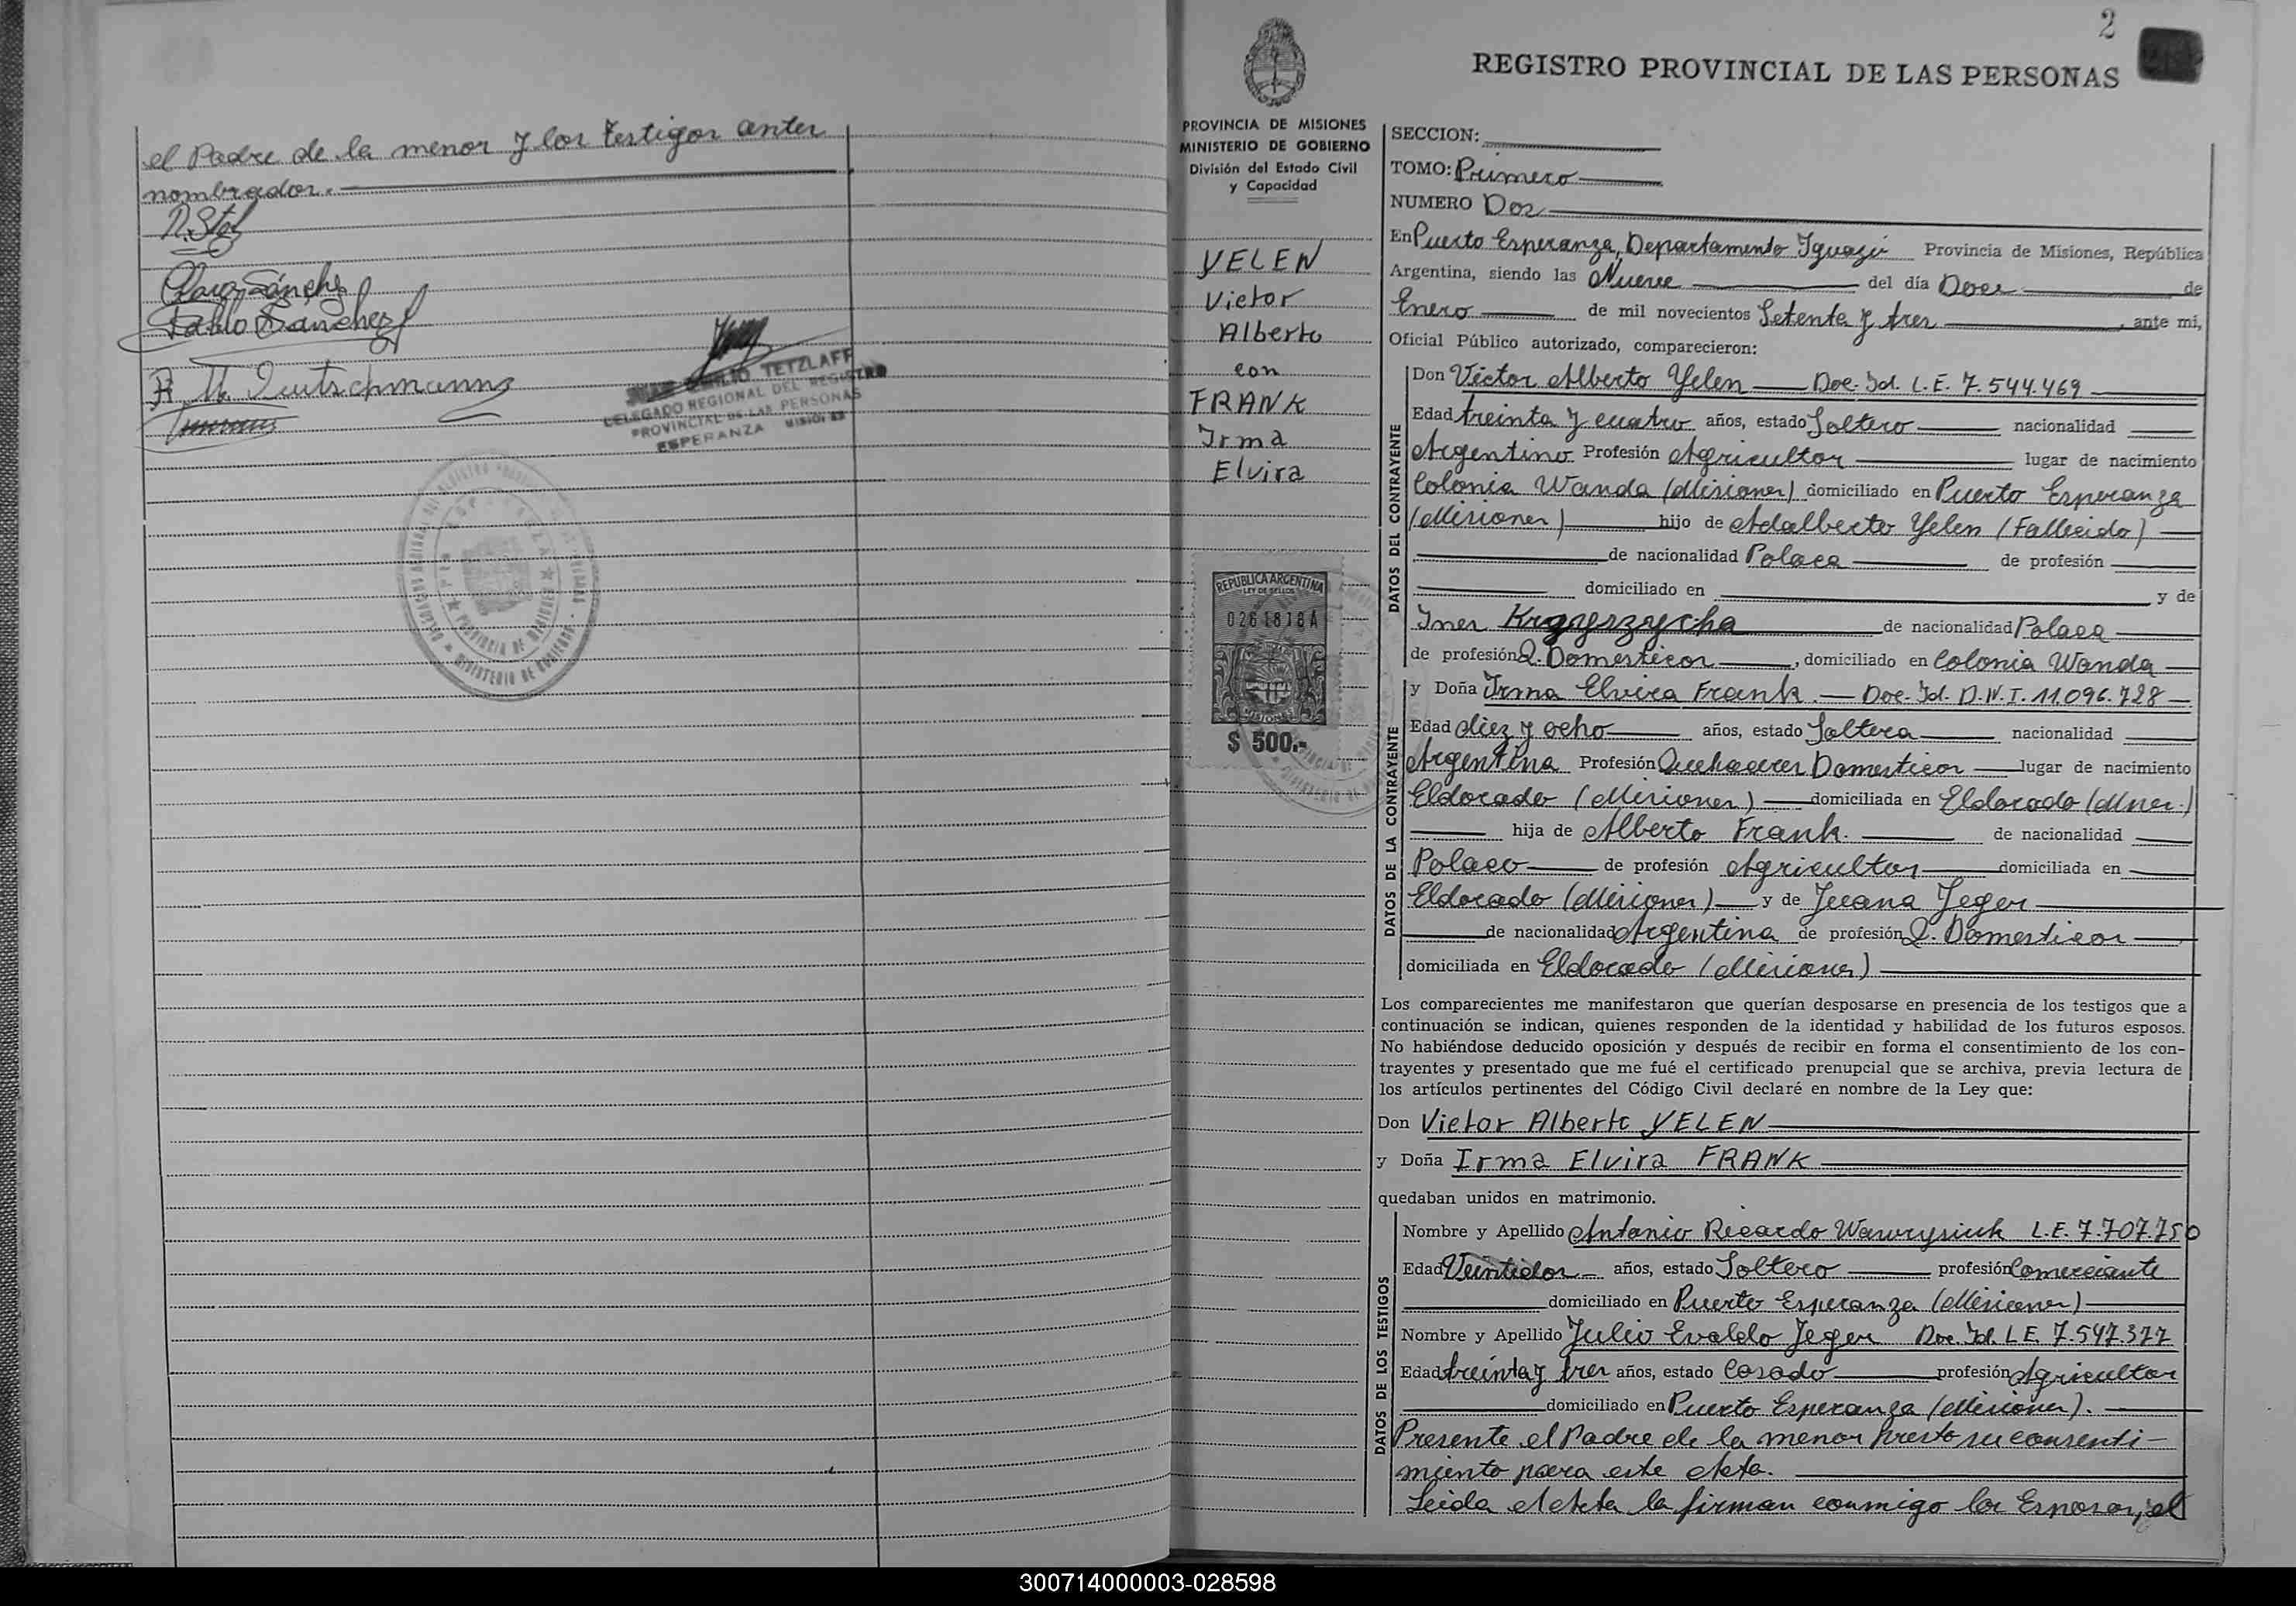 el Padre de la menor y los testigos antes
nombrados.
Pablo Sanchez
JUAN EMILIO TETZLAFF
DELEGADO REGIONAL DEL REGISTRO
PROVINCIAL DE LAS PERSONAS
ESPERANZA MISIONES
2
REGISTRO PROVINCIAL DE LAS PERSONAS
PROVINCIA DE MISIONES
MINISTERIO DE GOBIERNO
División del Estado Civil
y Capacidad
YELEN
Victor
Alberto
con
FRANK
Irma
Elvira
REPUBLICA ARGENTINA
LEY DE SELLOS
0261818A
MISIONES
$ 500.-
SECCION:
TOMO: Primero
NUMERO Dos
En Puerto Esperanza, Departamento Iguazú Provincia de Misiones, República
Argentina, siendo las Nueve del día Doce de
Enero de mil novecientos Setenta y tres, ante mi,
Oficial Público autorizado, comparecieron:
DATOS DEL CONTRAYENTE
Don Victor Alberto Yelen Doc. Id. L.E. 7.544.469
Edad treinta y cuatro años, estado Soltero nacionalidad
Argentino Profesión Agricultor lugar de nacimiento
Colonia Wanda (Misiones) domiciliado en Puerto Esperanza
(Misiones) hijo de Adalberto Yelen (Fallecido)
de nacionalidad Polaca de profesión
domiciliado en y de
Ines de nacionalidad Polaca
de profesión Q. Domesticos, domiciliado en Colonia Wanda
DATOS DE LA CONTRAYENTE
y Doña Irma Elvira Frank. Doc. Id. D.N.I. 11.096.728
Edad diez y ocho años, estado Soltera nacionalidad
Argentina Profesión Quehaceres Domesticos lugar de nacimiento
Eldorado (Misiones) domiciliada en Eldorado (Mnes.)
hija de Alberto Frank. de nacionalidad
Polaco de profesión Agricultor domiciliada en
Eldorado (Misiones) y de Juana Jeger
de nacionalidad Argentina de profesión Q. Domesticos
domiciliada en Eldorado (Misiones)
Los comparecientes me manifestaron que querían desposarse en presencia de los testigos que a
continuación se indican, quienes responden de la identidad y habilidad de los futuros esposos.
No habiéndose deducido oposición y después de recibir en forma el consentimiento de los con-
trayentes y presentado que me fué el certificado prenupcial que se archiva, previa lectura de
los artículos pertinentes del Código Civil declaré en nombre de la Ley que:
Don Victor Alberto YELEN
y Doña Irma Elvira FRANK
quedaban unidos en matrimonio.
DATOS DE LOS TESTIGOS
Nombre y Apellido Antonio Ricardo Wawrysiuk L.E. 7.707.750
Edad Veintidos años, estado Soltero profesión Comerciante
domiciliado en Puerto Esperanza (Misiones)
Nombre y Apellido Julio Evaldo Jeger Doc. Id. L.E. 7.547.377
Edad treinta y tres años, estado Casado profesión Agricultor
domiciliado en Puerto Esperanza (Misiones).
Presente el Padre de la menor presto su consenti-
miento para este Acto.
Leida el Acta la firman conmigo los Esposos, el
300714000003-028598